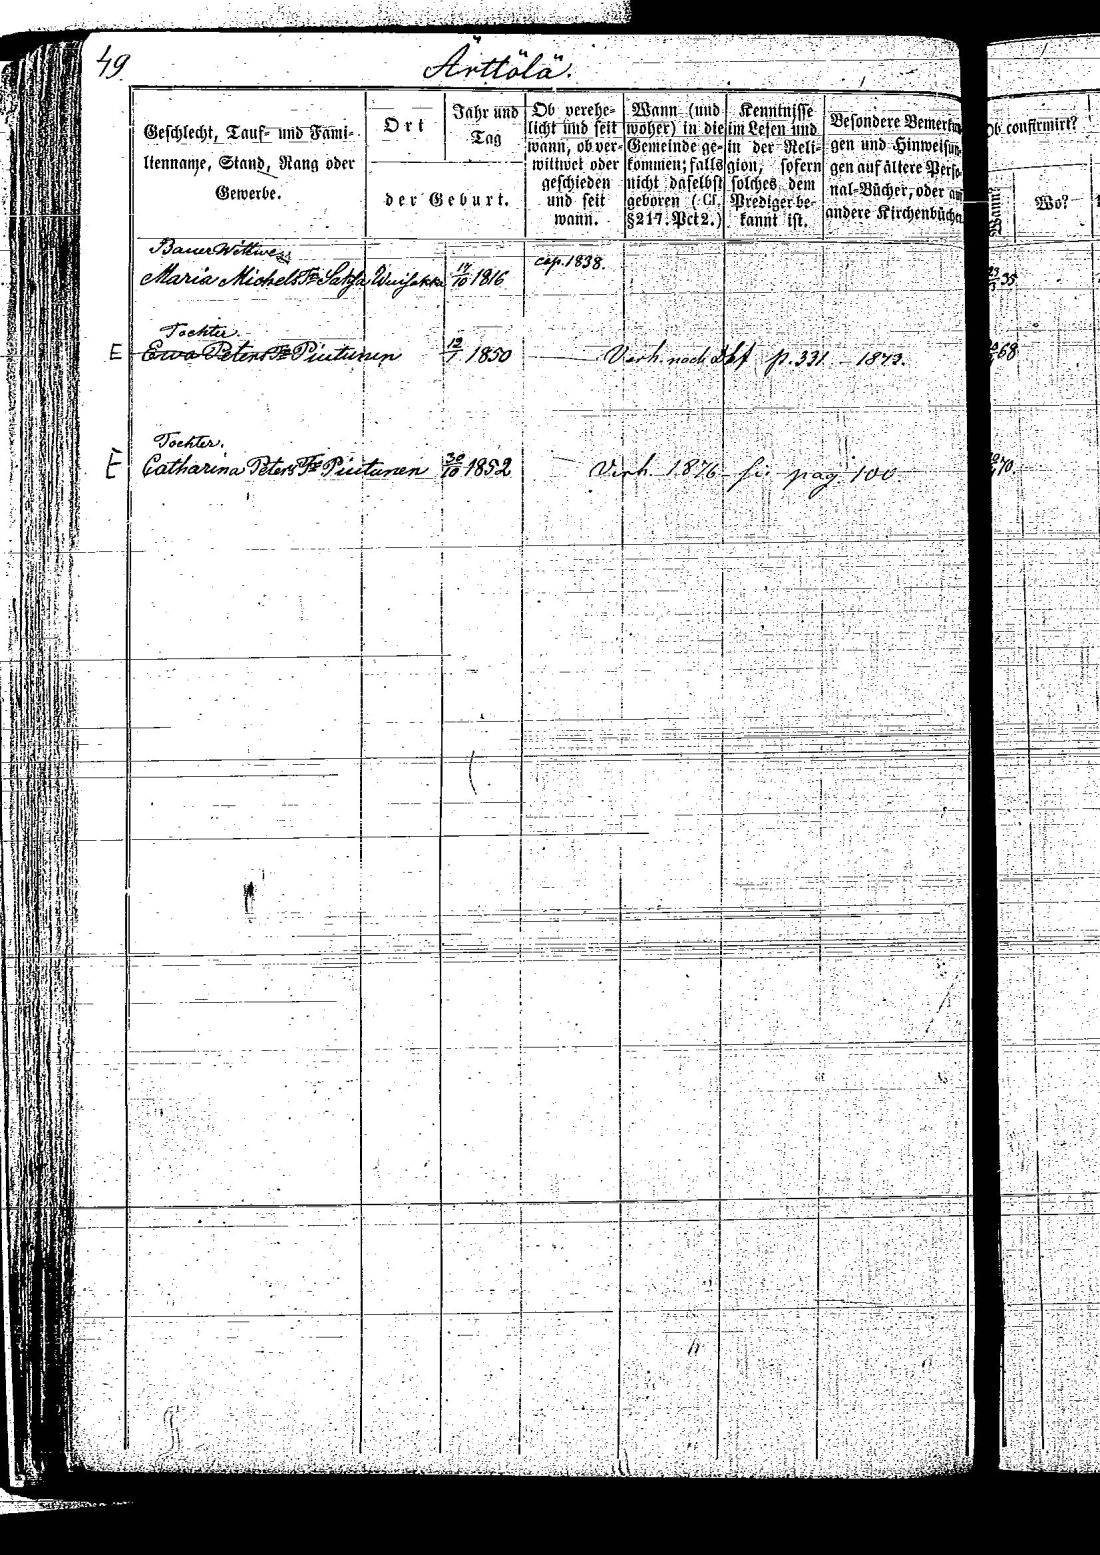 49
Ärttölä.
Geschlecht, Tauf- und Fami-
lienname, Stand, Rang oder
Gewerbe.
Ort
der Geburt.
Jahr und
Tag
Ob verehe-
licht und seit
wann, ob ver-
wittwet oder
geschieden
und seit
wann.
Wann (und
woher) in die
Gemeinde ge-
kommen; falls
nicht daselbst
geboren (Cf.
§217. Pct 2.)
Kenntnisse
im Lesen und
in der Reli-
gion, sofern
solches dem
Prediger be-
kannt ist.
Besondere Bemerkun
gen und Hinweisun
gen auf ältere Perso
nal-Bücher, oder an
andere Kirchenbüche
Ob confirmirt?
Wann?
Wo?
Bauer Wittwe
Maria Michels Tr. 17/10 1816 cop. 1838. 35
Tochter.
E Ewa Peters Tr. Piutunen 12/1 1850 Verh. nach p. 331. 1873. 68
Tochter.
E Catharina Peters Tr. Piutunen 30/10 1852 Verh. 1876 pag. 100. 70.